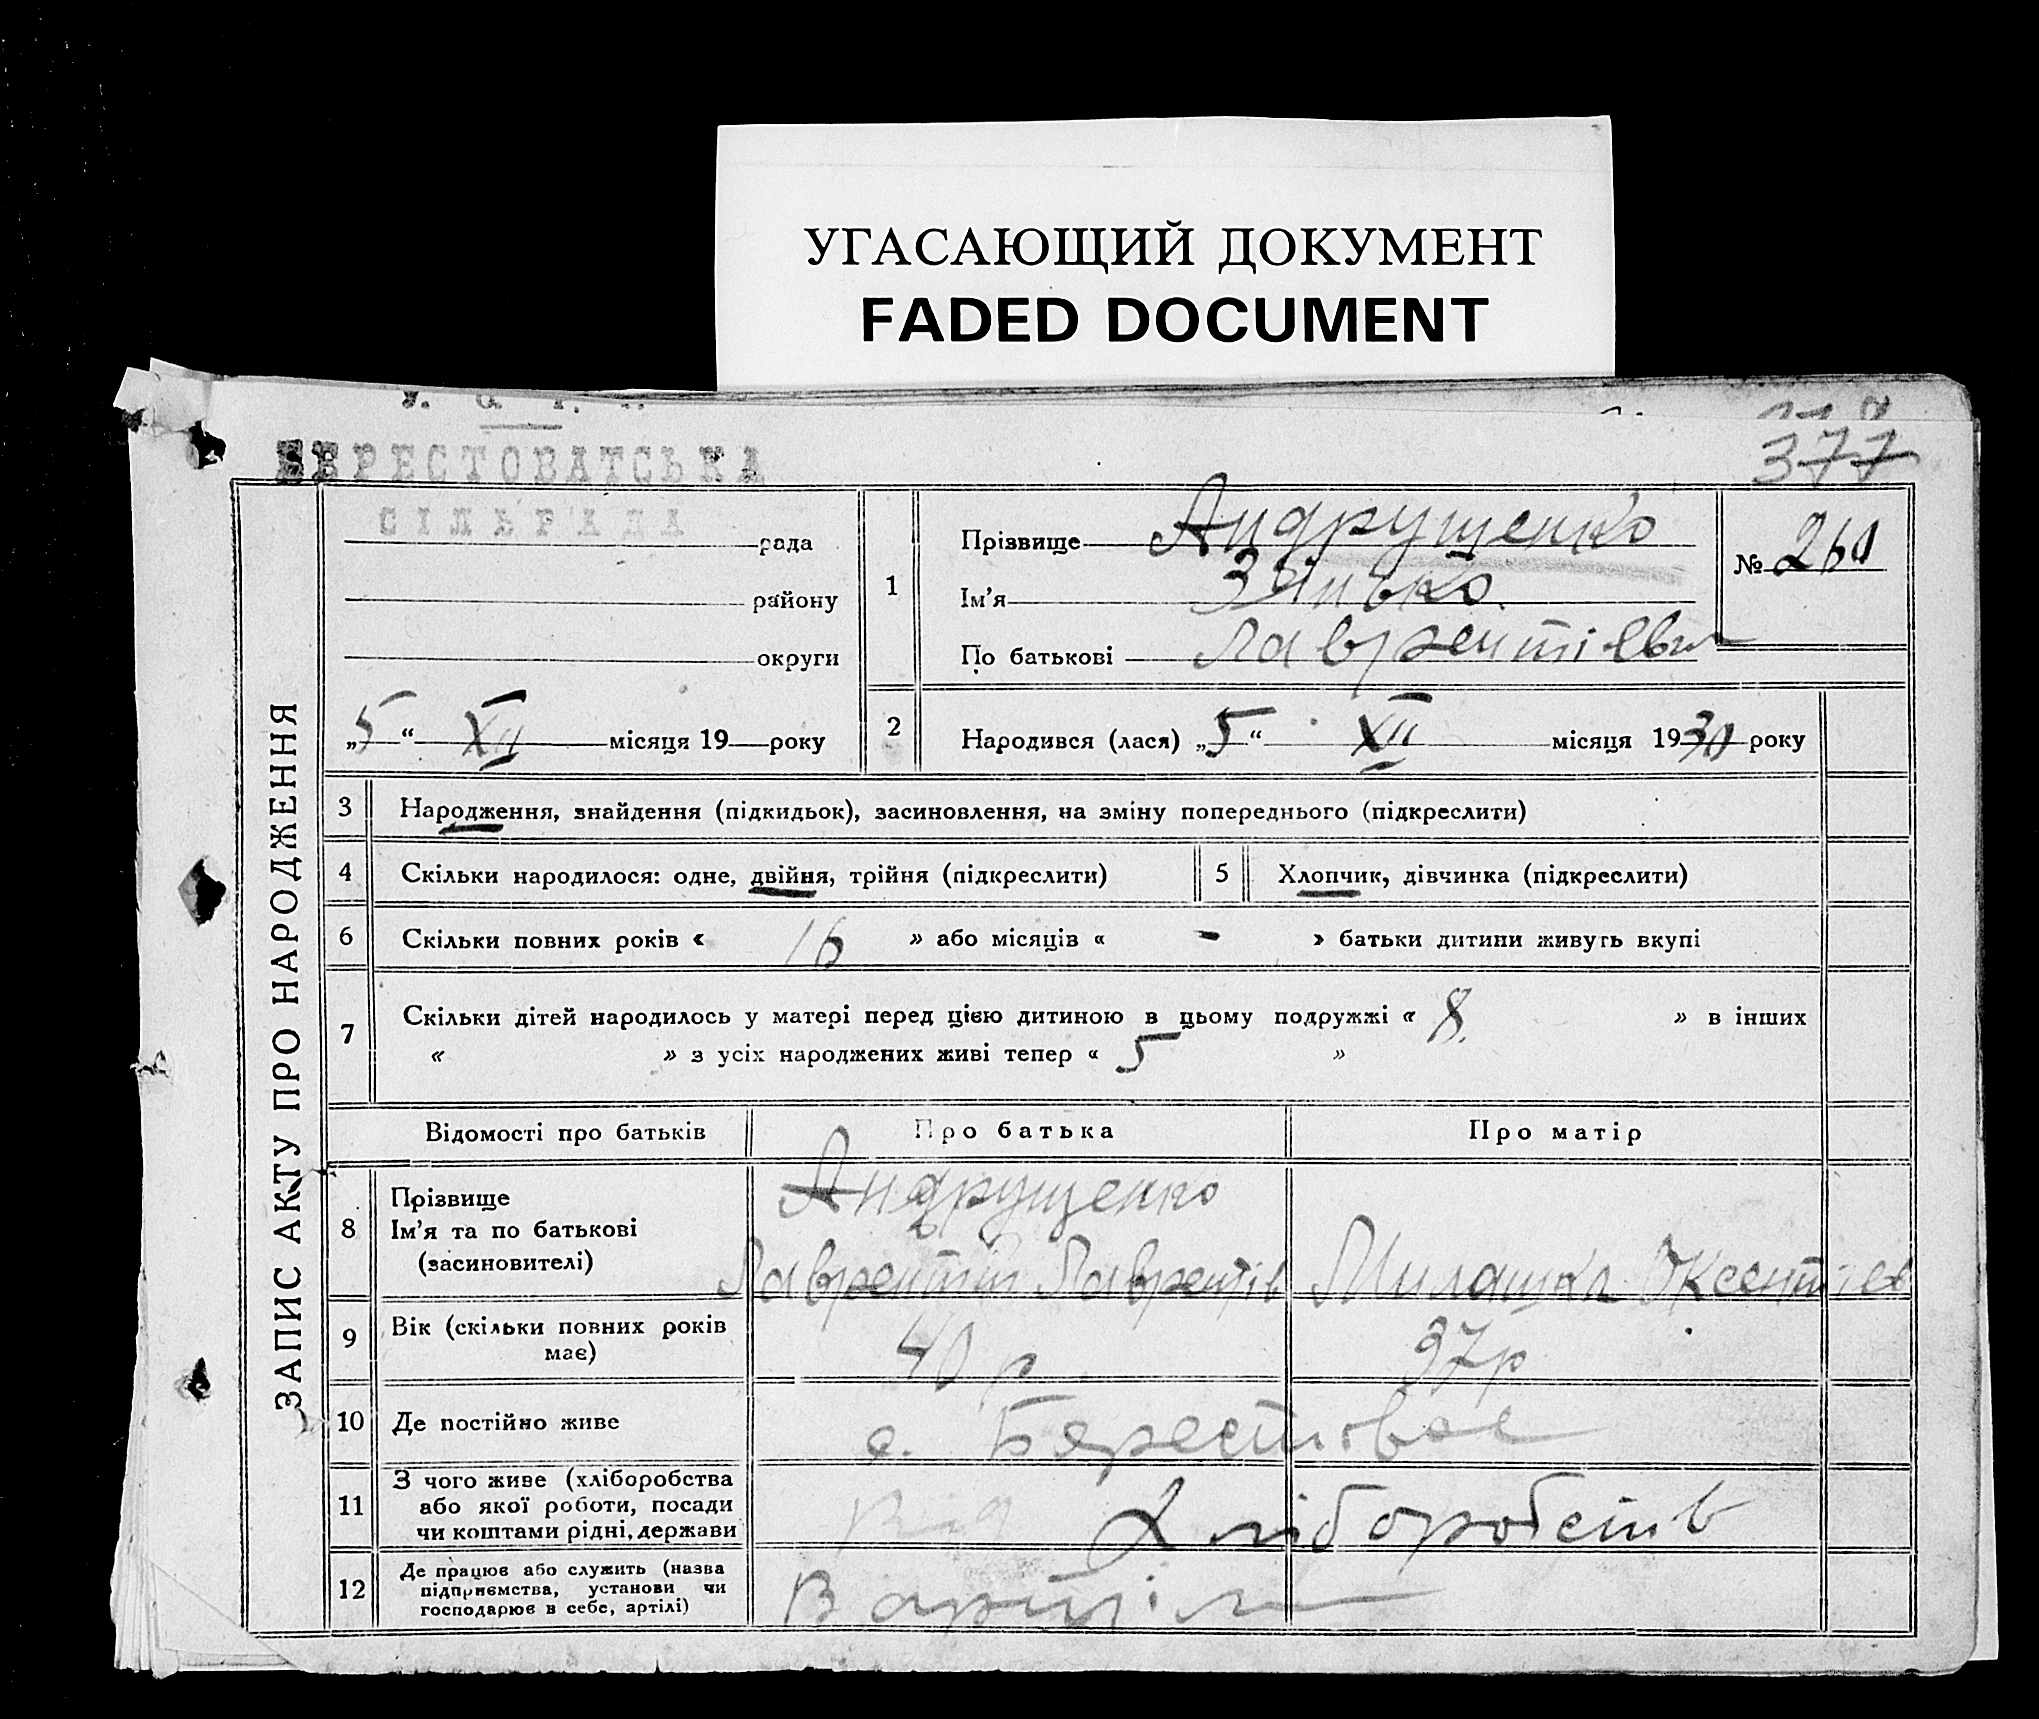 УГАСАЮЩИЙ ДОКУМЕНТ
FADED DOCUMENT
377
БЕРЕСТОВАТСЬКА
СІЛЬРАДА
ЗАПИС АКТУ ПРО НАРОДЖЕННЯ
рада
району
округи
„5“ XII місяця 19 року
1
Прізвище Андрущенко
Ім’я Зінько.
По батькові Лаврентієви
№ 260
2 Народився (лася) „5“ XII місяця 1930 року
3 Народження, знайдення (підкидьок), засиновлення, на зміну попереднього (підкреслити)
4 Скільки народилося: одне, двійня, трійня (підкреслити)
5 Хлопчик, дівчинка (підкреслити)
6 Скільки повних років « 16 » або місяців « - » батьки дитини живуть вкупі
7 Скільки дітей народилось у матері перед цією дитиною в цьому подружжі « 8. » в інших
« » з усіх народжених живі тепер « 5 »
Відомості про батьків Про батька Про матір
8 Прізвище
Ім’я та по батькові
(засиновителі)
Андрущенко
Лаврентій Лаврентів
Милашка Оксентіев
9 Вік (скільки повних років
має)
40 р
37р
10 Де постійно живе с. Берестоває
11 З чого живе (хліборобства
або якої роботи, посади
чи коштами рідні, держави
Від Хліборобств
12 Де працює або служить (назва
підприємства, установи чи
господарює в себе, артілі)
В артілі